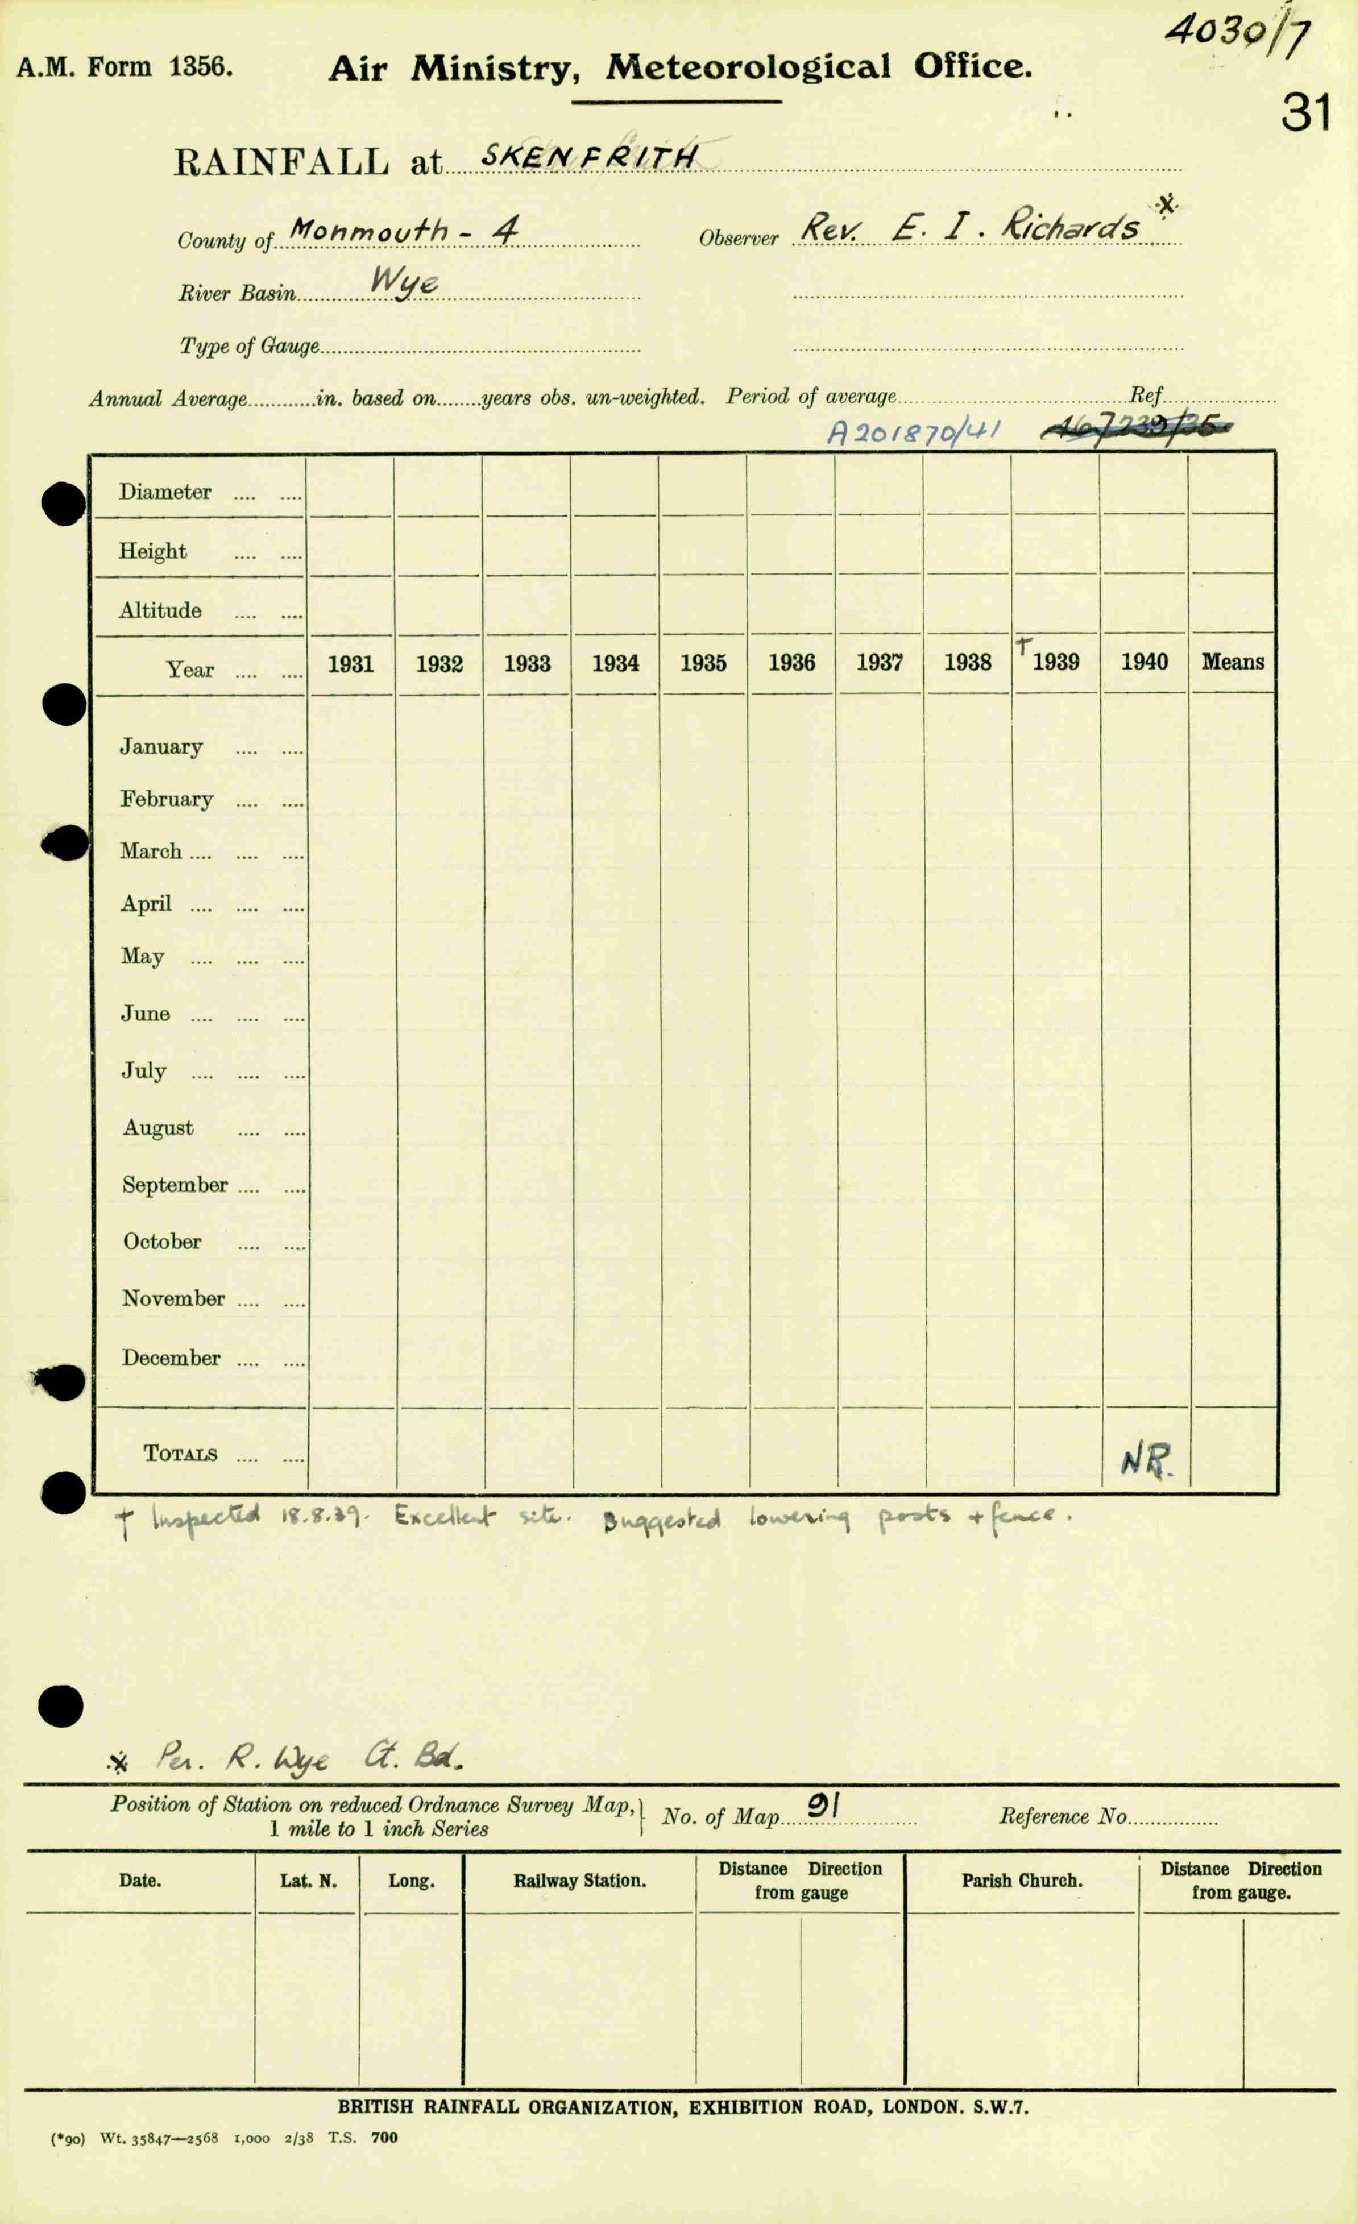 4030/7
A.M. Form 1356. Air Ministry, Meteorological Office.
31
RAINFALL at SKENFRITH
County of Monmouth - 4 Observer Rev. E. I. Richards *
River Basin Wye
Type of Gauge
Annual Average in. based on years obs. un-weighted. Period of average Ref.
A201870/41
Diameter
Height
Altitude
Year 1931 1932 1933 1934 1935 1936 1937 1938 † 1939 1940 Means
January
February
March
April
May
June
July
August
September
October
November
December
TOTALS NR.
† Inspected 18.8.39. Excellent site. Suggested lowering posts + fence.
* Per. R. Wye Ct. Bd.
Position of Station on reduced Ordnance Survey Map, } No. of Map 91 Reference No.
1 mile to 1 inch Series
Date. Lat. N. Long. Railway Station. Distance Direction from gauge Parish Church. Distance Direction from gauge.
BRITISH RAINFALL ORGANIZATION, EXHIBITION ROAD, LONDON. S.W.7.
(*90) Wt. 35847—2568 1,000 2/38 T.S. 700